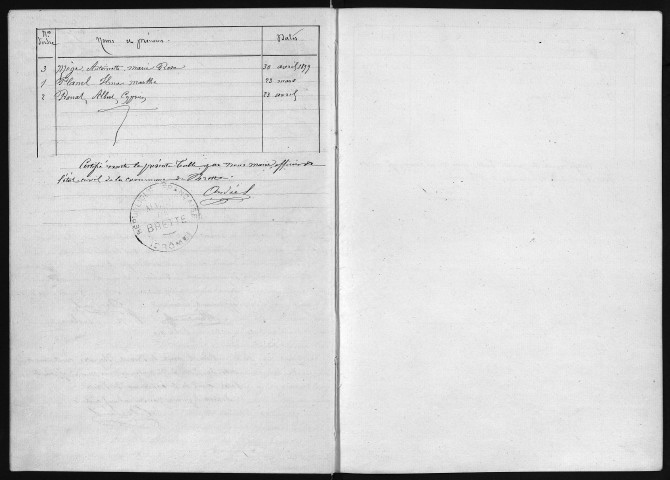 Nos d'ordre Noms et prénoms. Dates
3 Mège Antoinette Marie Rose 30 avril 1899
1 Planel Marthe 23 mars
2 Albert Cyprien 23 avril
Certifié exacte la présente Table par nous maire officier de
l'état civil de la commune de Brette.
RÉPUBLIQUE FRANÇAISE
MAIRIE
BRETTE
(DRÔME)